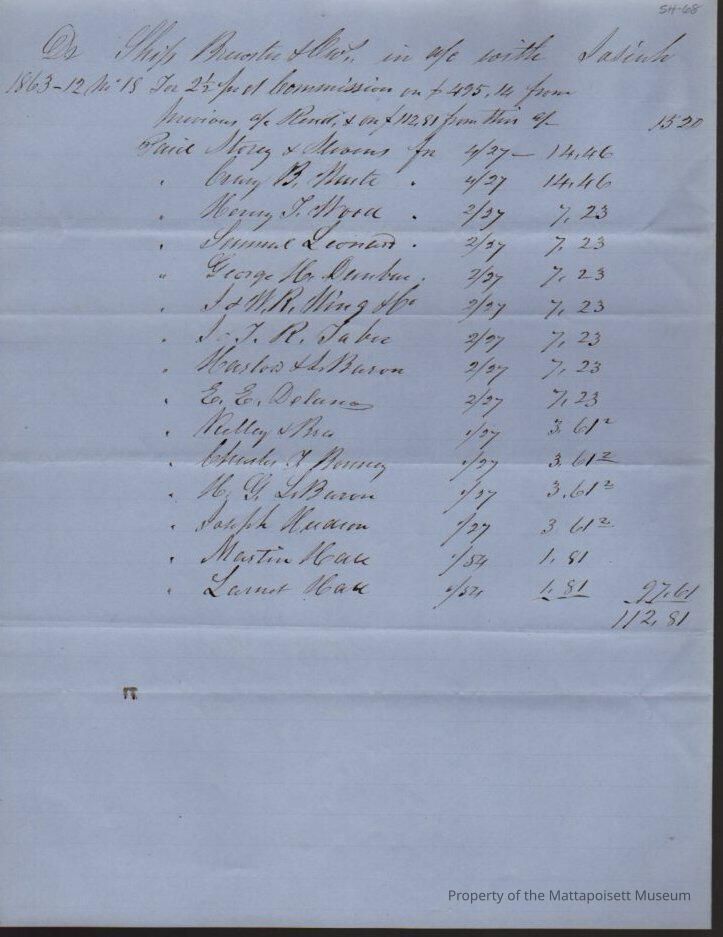 SH-68
Dr Ship Brewster & Own in a/c with Josiah
1863-12 Mo 18 For 2½ pr ct Commission on $495,14 from
previous a/c Rend, & on $112,81 from this a/c 15 20
Paid Morey & Stevens for 4/27 — 14,46
" B. 4/27 14,46
" Henry T. Wood " 2/27 7,23
" Samuel Leonard " 2/27 7,23
" George H. Dunbar " 2/27 7,23
" J & W. R. Wing & Co 2/27 7,23
" J. T. R. Taber 2/27 7,23
" Barlow & LeBaron 2/27 7,23
" E. E. Delano 2/27 7,23
" Kelley & Bro 1/27 3.61²
" Charles F Bonney 1/27 3.61²
" H. G. LeBaron 1/27 3.61²
" Joseph Hudson 1/27 3 61²
" Martin Hall 1/54 1.81
" Hall 1/54 1.81 97.61
112,81
Property of the Mattapoisett Museum